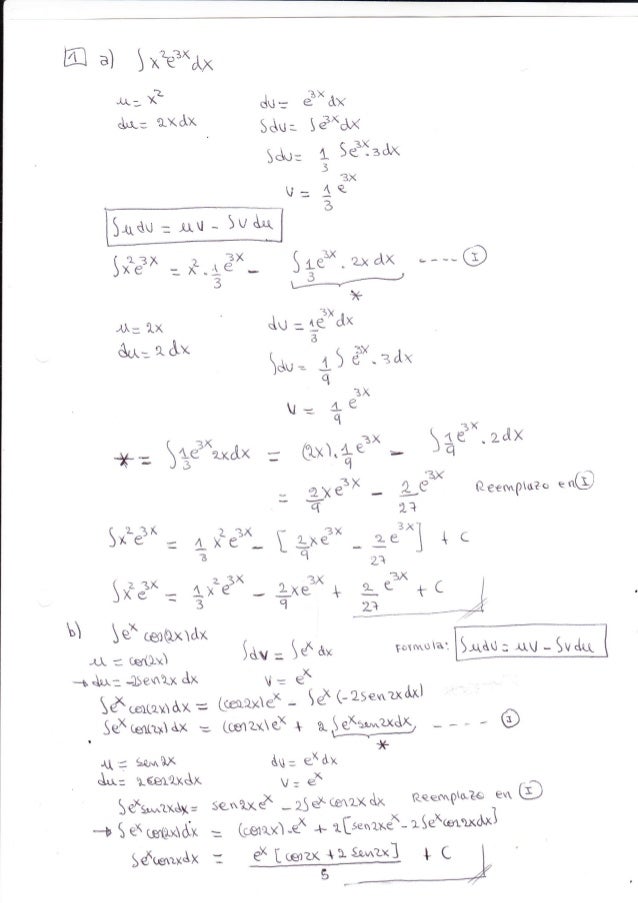 1 a) ∫x²e^{3x}dx
u = x²    dv = e^{3x}dx
du = 2xdx    ∫dv = ∫e^{3x}dx
∫dv = 1/3 ∫e^{3x}.3dx
v = 1/3 e^{3x}
∫u dv = uv - ∫v du
∫x²e^{3x} = x². 1/3 e^{3x} - ∫1/3 e^{3x}. 2x dx ---- (I)
*
u = 2x    dv = 1/3 e^{3x}dx
du = 2dx    ∫dv = 1/9 ∫e^{3x}.3dx
v = 1/9 e^{3x}
* = ∫1/3 e^{3x} 2xdx = (2x). 1/9 e^{3x} - ∫1/9 e^{3x}. 2dx
= 2/9 xe^{3x} - 2/27 e^{3x}    Reemplazo en (I)
∫x²e^{3x} = 1/3 x²e^{3x} - [2/9 xe^{3x} - 2/27 e^{3x}] + C
∫x²e^{3x} = 1/3 x²e^{3x} - 2/9 xe^{3x} + 2/27 e^{3x} + C
b) ∫e^x cos(2x)dx
u = cos(2x)    ∫dv = ∫e^x dx    Formula: ∫udv = uv - ∫vdu
→ du = -2sen2x dx    v = e^x
∫e^x cos(2x)dx = (cos2x)e^x - ∫e^x (-2sen2xdx)
∫e^x cos(2x)dx = (cos2x)e^x + 2∫e^x sen2xdx ---- (I)
*
u = sen2x    dv = e^x dx
du = 2cos2xdx    v = e^x
∫e^x sen2xdx = sen2xe^x - 2∫e^x cos2xdx    Reemplazo en (I)
→ ∫e^x cos(2x)dx = (cos2x).e^x + 2[sen2xe^x - 2∫e^x cos2xdx]
∫e^x cos2xdx = e^x [cos2x + 2sen2x] / 5 + C